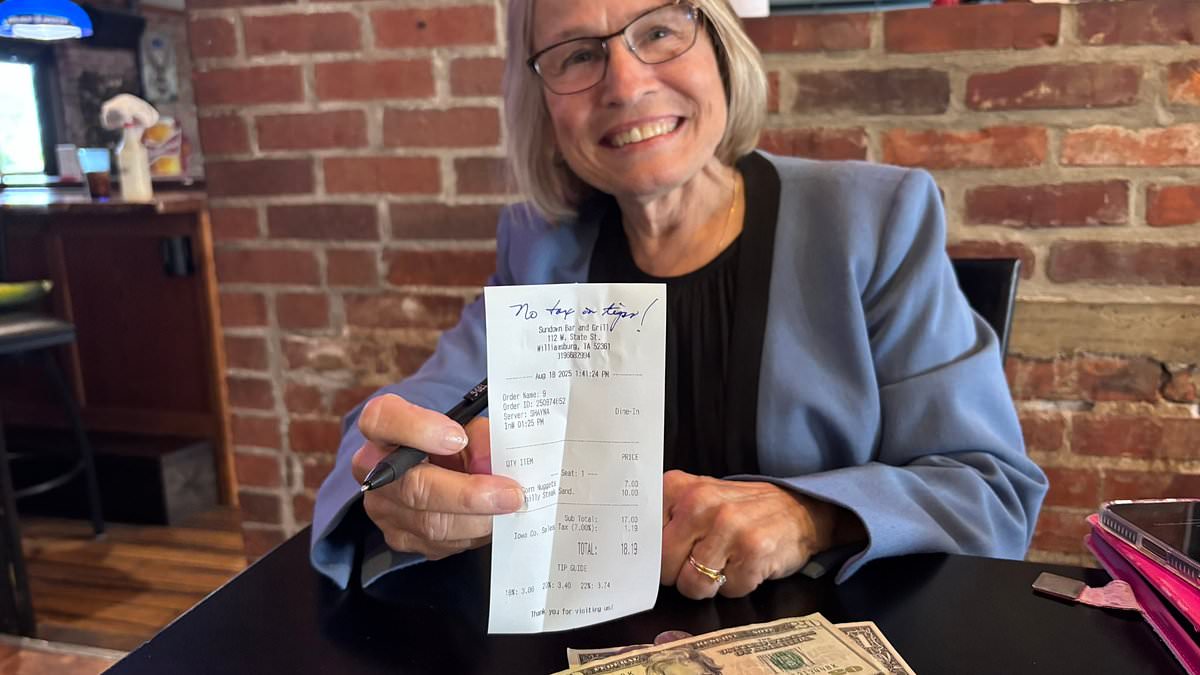 No tax on tips!
Sundown Bar and Grill
112 W. State St.
Williamsburg, IA 52361
3196682994
Aug 18 2025 1:41:24 PM
Order Name: 9
Order ID: 250874652
Server: SHAYNA
Dine-In
In# 01:25 PM
QTY ITEM
PRICE
--- Seat: 1 ---
Corn Nuggets 7.00
Philly Steak Sand. 10.00
Sub Total: 17.00
Iowa Co. Sales Tax (7.00%): 1.19
TOTAL: 18.19
TIP GUIDE
18%: 3.06 20%: 3.40 22%: 3.74
Thank you for visiting us!
FEDERAL RESERVE NOTE